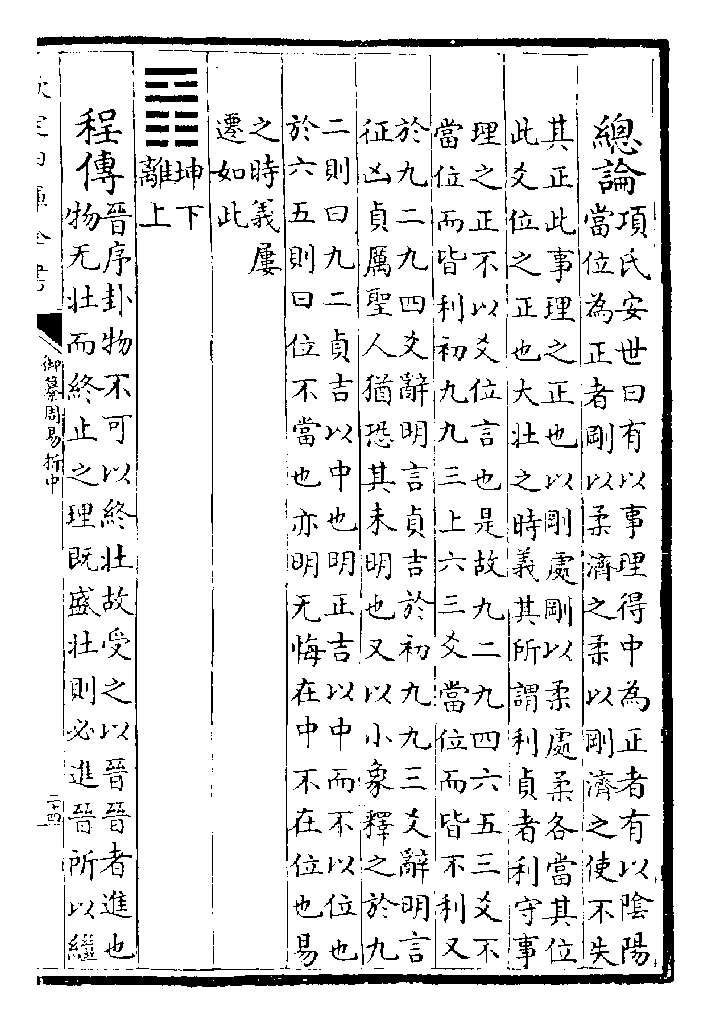 總論項氏安世曰有以事理得中為正者有以陰陽
當位為正者剛以柔濟之柔以剛濟之使不失
其正此事理之正也以剛處剛以柔處柔各當其位
此爻位之正也大壯之時義其所謂利貞者利守事
理之正不以爻位言也是故九二九四六五三爻不
當位而皆利初九九三上六三爻當位而皆不利又
於九二九四爻辭明言貞吉於初九九三爻辭明言
征凶貞厲聖人猶恐其未明也又以小象釋之於九
二則曰九二貞吉以中也明正吉以中而不以位也
於六五則曰位不當也亦明无悔在中不在位也易
之時義屢
遷如此
䷢坤下
離上
程傳晉序卦物不可以終壯故受之以晉晉者進也
物无壯而終止之理既盛壯則必進晉所以繼
欽定四庫全書
御纂周易折中
二十四